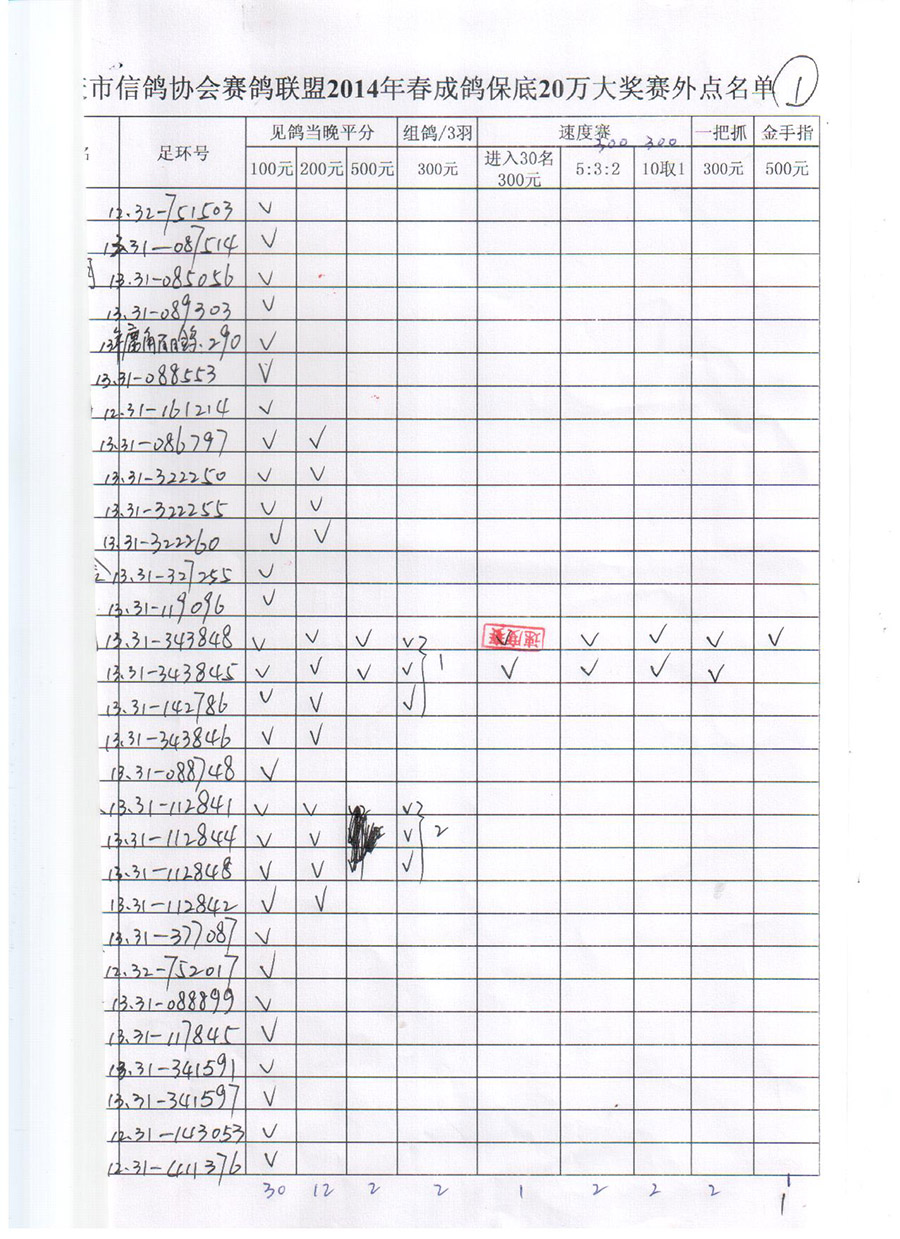 市信鸽协会赛鸽联盟2014年春成鸽保底20万大奖赛外点名单 1
名 足环号 见鸽当晚平分 组鸽/3羽 速度赛 一把抓 金手指
300 300
100元 200元 500元 300元 进入30名 300元 5:3:2 10取1 300元 500元
12.32-751503 ✓
13.31-087514 ✓
13.31-085056 ✓
13.31-089303 ✓
290 ✓
13.31-088553 ✓
12.31-161214 ✓
13.31-086797 ✓ ✓
13.31-322250 ✓ ✓
13.31-322255 ✓ ✓
13.31-322260 ✓ ✓
13.31-327255 ✓
13.31-119096 ✓
13.31-343848 ✓ ✓ ✓ ✓ 速度赛 ✓ ✓ ✓ ✓ ✓
13.31-343845 ✓ ✓ ✓ ✓ 1 ✓ ✓ ✓ ✓
13.31-142786 ✓ ✓ ✓
13.31-343846 ✓ ✓
13.31-088748 ✓
13.31-112841 ✓ ✓ ✓
13.31-112844 ✓ ✓ ✓ 2
13.31-112848 ✓ ✓ ✓
13.31-112842 ✓ ✓
13.31-377087 ✓
12.32-752017 ✓
13.31-088899 ✓
13.31-117845 ✓
13.31-341591 ✓
13.31-341597 ✓
12.31-143053 ✓
12.31-411376 ✓
30 12 2 2 1 2 2 2 1
1